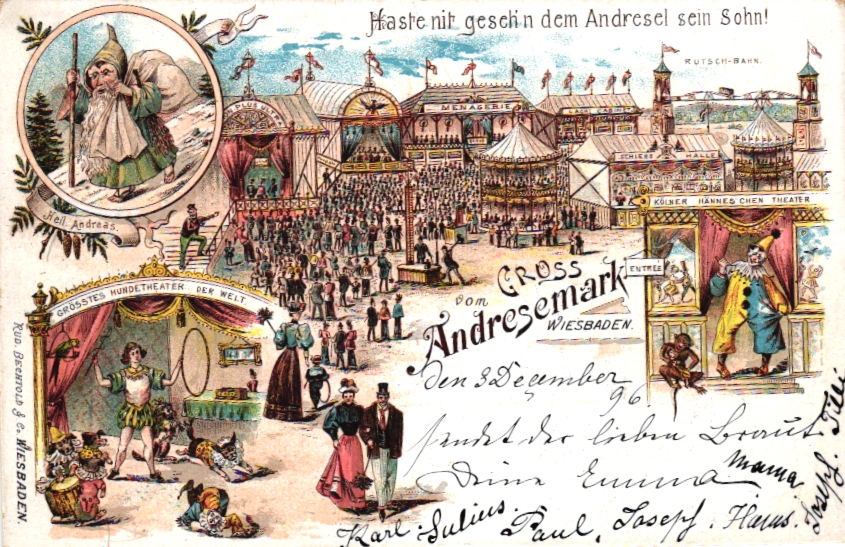 Haste nit geseh'n dem Andresel sein Sohn!
RUTSCH-BAHN.
MENAGERIE
SCHIESS HALLE
KÖLNER HÄNNES'CHEN THEATER
ENTRÉE
Heil. Andreas.
GRÖSSTES HUNDETHEATER DER WELT.
GROSS
vom
Andresemark
WIESBADEN.
RUD. BECHTOLD & Cº. WIESBADEN.
den 3 Dezember
96
sendet der lieben Braut
Deine Emma
Mama
Karl. Julius. Paul, Joseph. Hans.
Joseph. Tilli